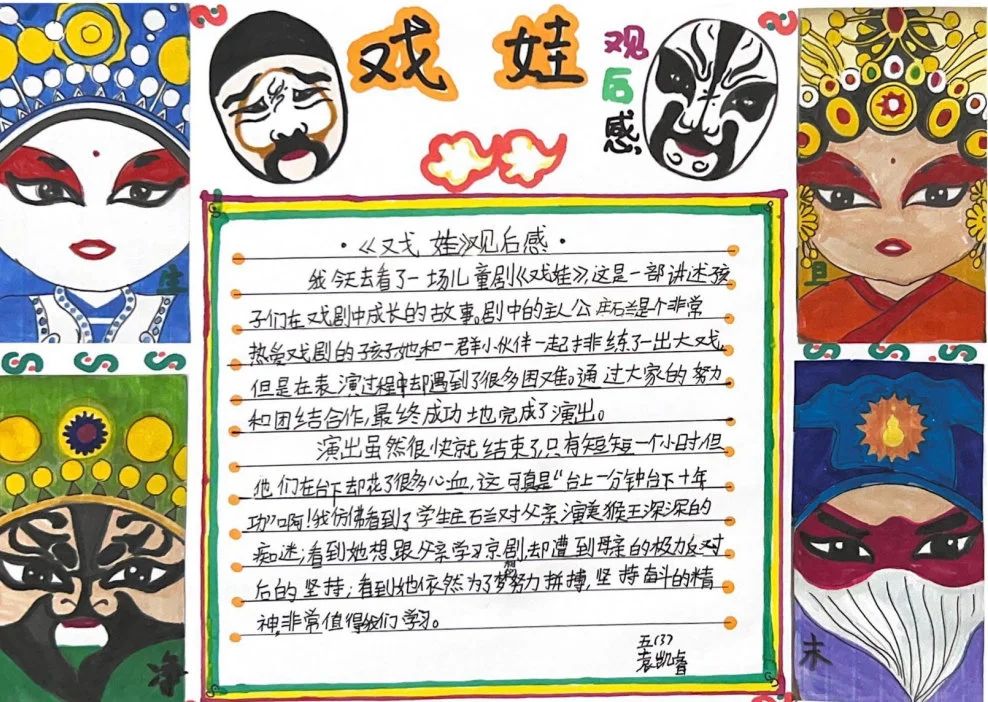 戏 娃
观后感
生
旦
净
末
·《戏 娃》观后感·
我今天去看了一场儿童剧《戏娃》,这是一部讲述孩
子们在戏剧中成长的故事。剧中的主人公庄石兰是个非常
热爱戏剧的孩子,她和一群小伙伴一起排练了一出大戏,
但是在表演过程中却遇到了很多困难。通过大家的努力
和团结合作,最终成功地完成了演出。
演出虽然很快就结束了,只有短短一个小时,但
他们在台下却花了很多心血,这可真是“台上一分钟台下十年
功”啊!我仿佛看到了学生庄石兰对父亲演美猴王深深的
痴迷;看到她想跟父亲学习京剧,却遭到母亲的极力反对
后的坚持;看到她依然为了梦想努力拼搏,坚持奋斗的精
神,非常值得我们学习。
五(3)
袁凯睿